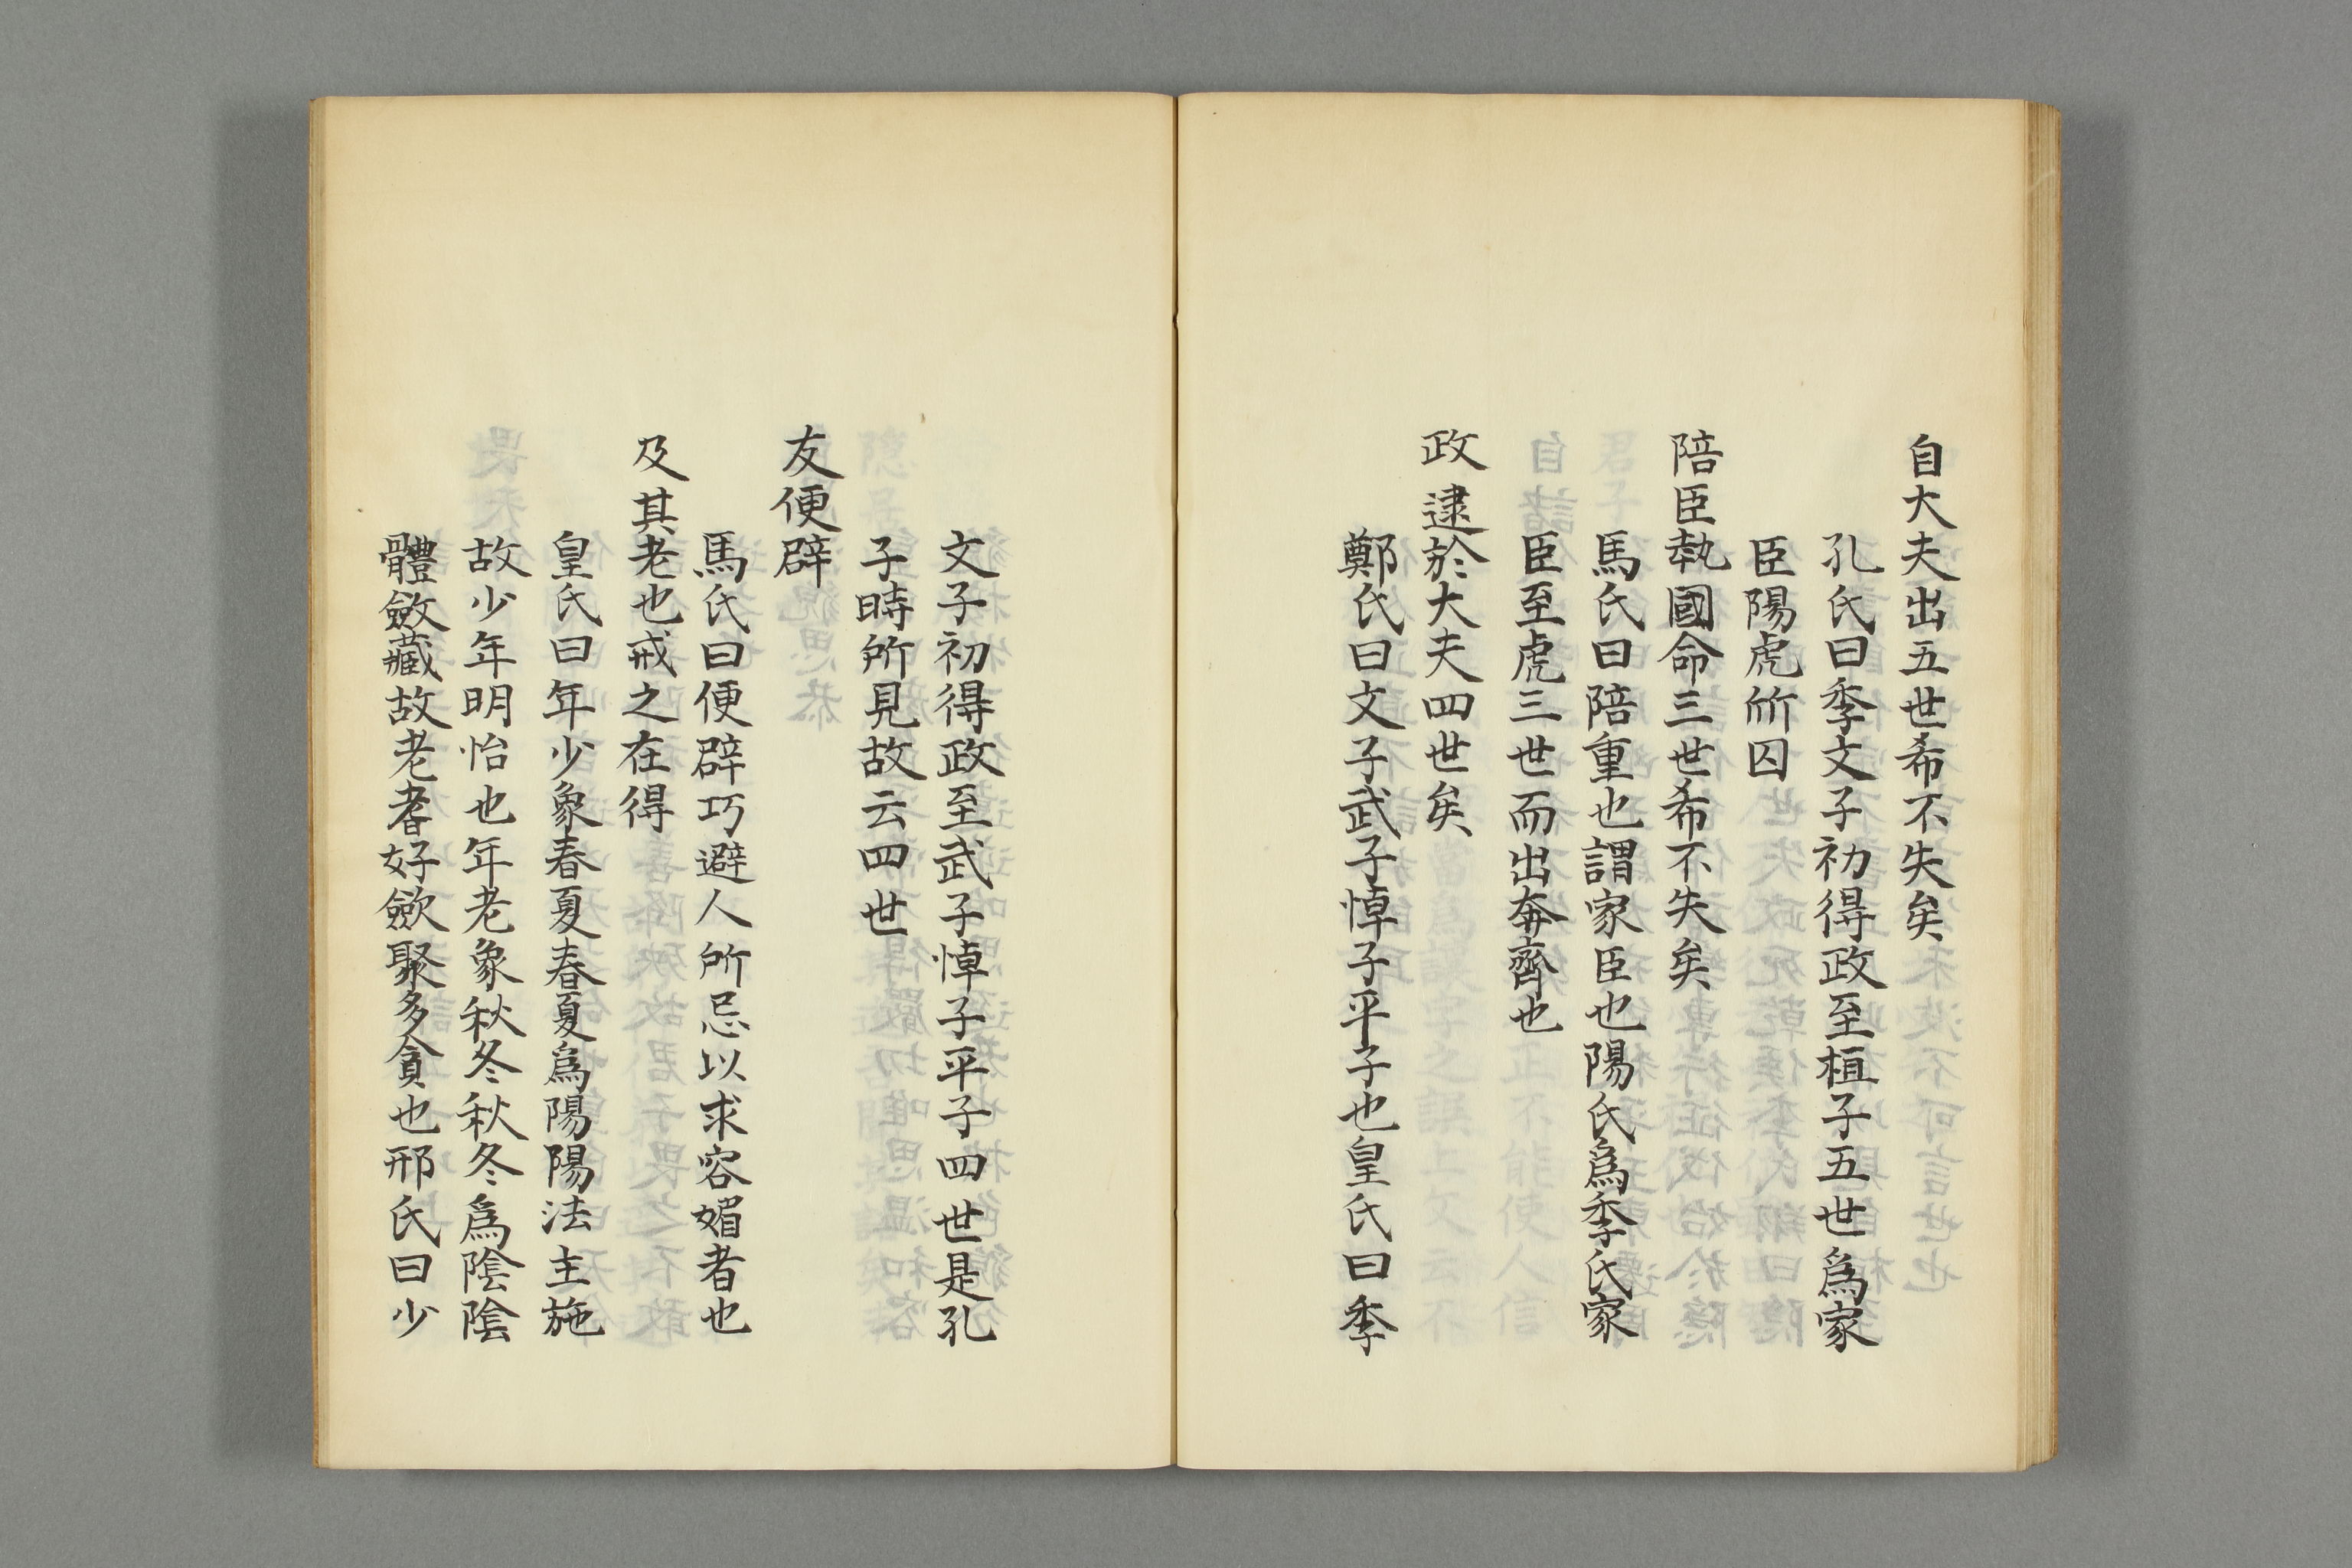 自大夫出五世希不失矣
孔氏曰季文子初得政至桓子五世爲家
臣陽虎所囚
陪臣執國命三世希不失矣
馬氏曰陪重也謂家臣也陽氏爲季氏家
臣至虎三世而出奔齊也
政逮於大夫四世矣
鄭氏曰文子武子悼子平子也皇氏曰季
文子初得政至武子悼子平子四世是孔
子時所見故云四世
友便辟
馬氏曰便辟巧避人所忌以求容媚者也
及其老也戒之在得
皇氏曰年少象春夏春夏爲陽陽法主施
故少年明怡也年老象秋冬秋冬爲陰陰
體斂藏故老耆好斂聚多貪也邢氏曰少